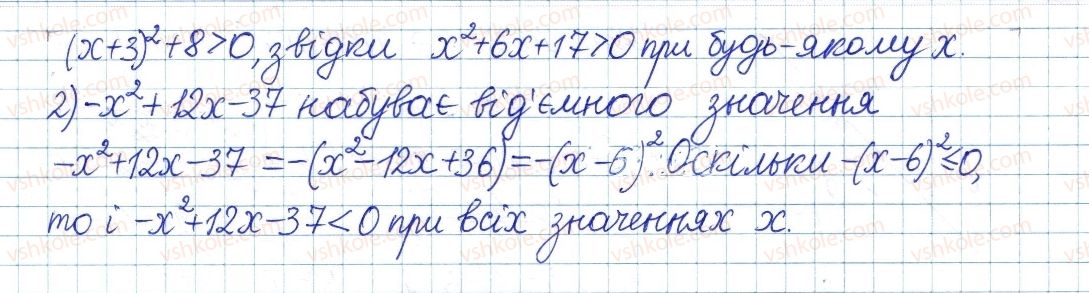 (x+3)²+8>0, звідки x²+6x+17>0 при будь-якому x.
2) -x²+12x-37 набуває від'ємного значення
-x²+12x-37 = -(x²-12x+36) = -(x-6)². Оскільки -(x-6)²≤0,
то і -x²+12x-37<0 при всіх значеннях x.